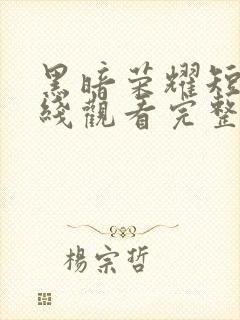 黑暗荣耀短
綫觀看完整
楊宗哲